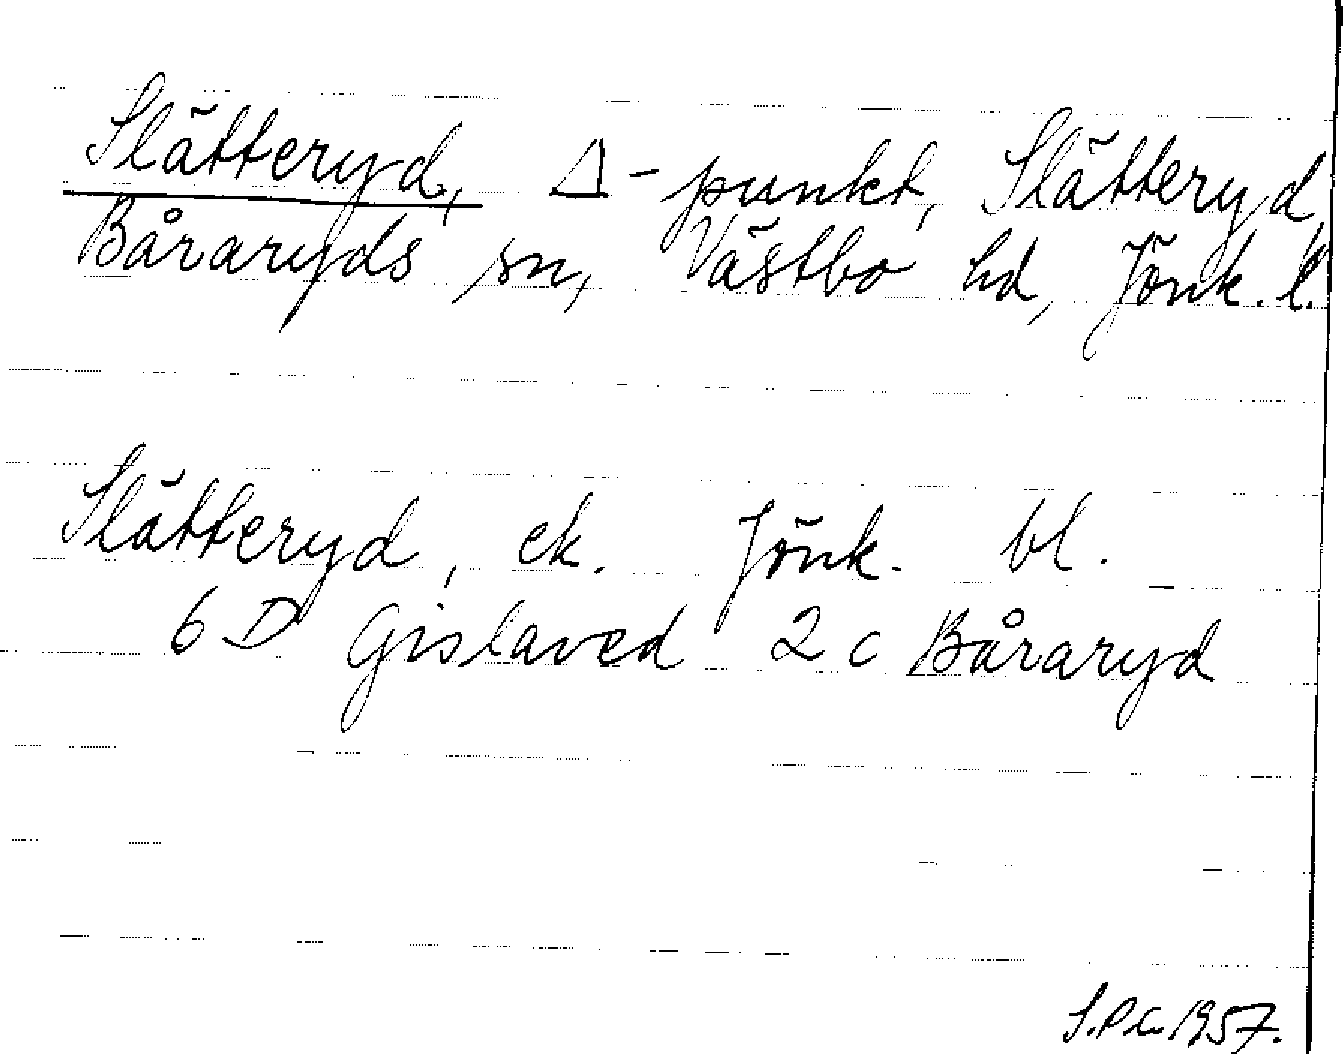 Slätteryd, Δ-punkt, Slätteryd,
Båraryds sn, Västbo hd, Jönk. l.
Slätteryd, ek. Jönk. bl.
6 D Gislaved 2 c Båraryd
1957.